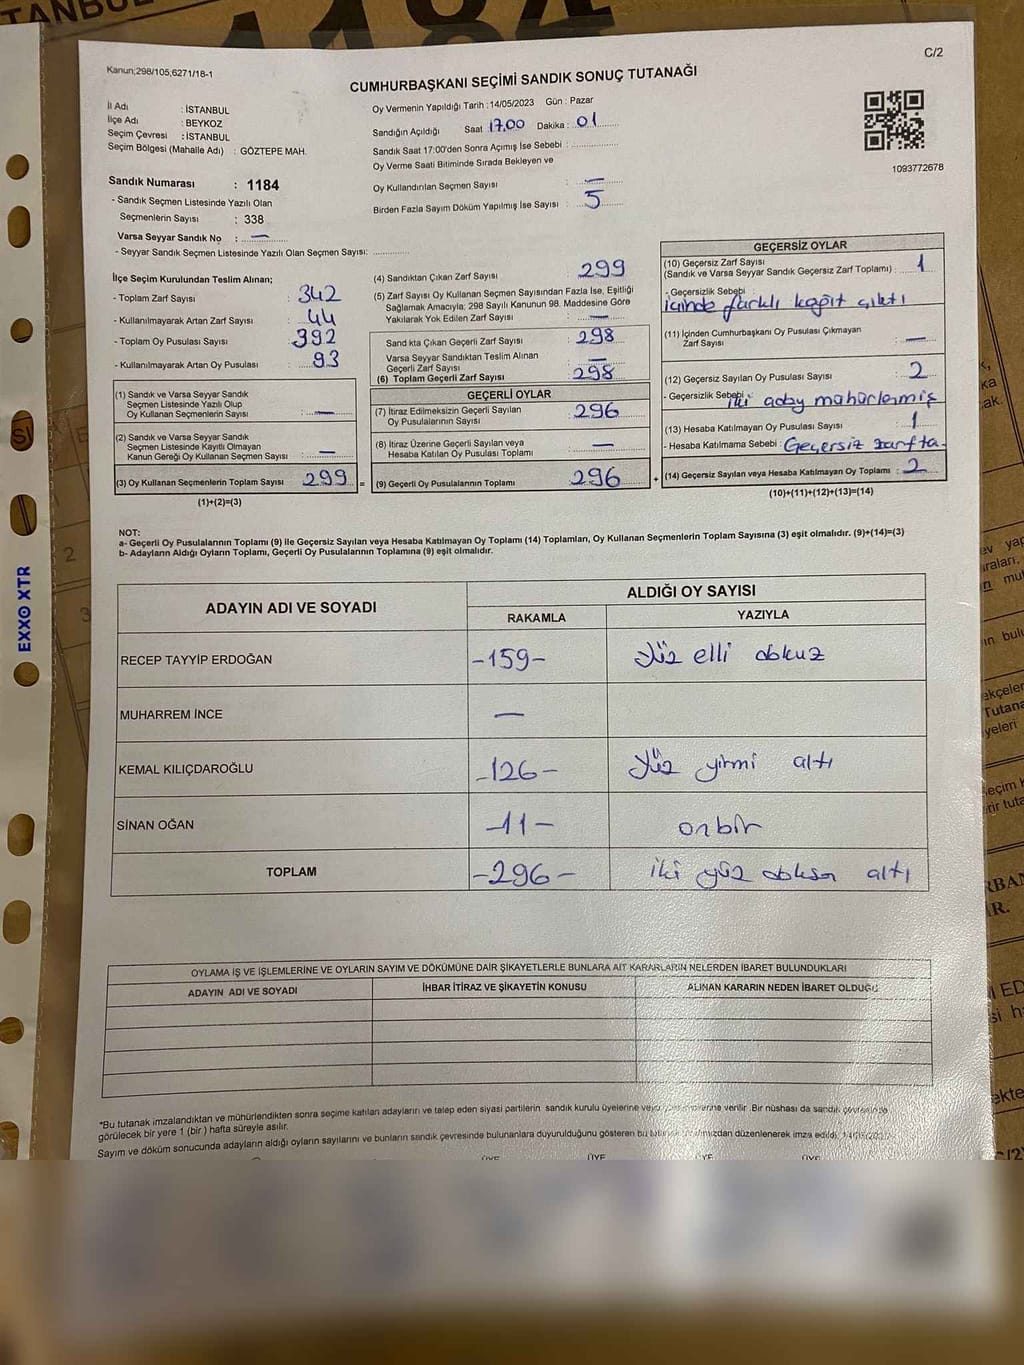 TANBUL
1184
C/2
Kanun;298/105,6271/18-1
CUMHURBAŞKANI SEÇİMİ SANDIK SONUÇ TUTANAĞI
İl Adı : İSTANBUL
İlçe Adı : BEYKOZ
Seçim Çevresi : İSTANBUL
Seçim Bölgesi (Mahalle Adı) : GÖZTEPE MAH.
Oy Vermenin Yapıldığı Tarih : 14/05/2023 Gün : Pazar
Sandığın Açıldığı Saat 17.00 Dakika : 01
Sandık Saat 17:00'den Sonra Açımış İse Sebebi :
Oy Verme Saati Bitiminde Sırada Bekleyen ve
Oy Kullandırılan Seçmen Sayısı : —
Birden Fazla Sayım Döküm Yapılmış İse Sayısı : 5
1093772678
Sandık Numarası : 1184
- Sandık Seçmen Listesinde Yazılı Olan
Seçmenlerin Sayısı : 338
Varsa Seyyar Sandık No : —
- Seyyar Sandık Seçmen Listesinde Yazılı Olan Seçmen Sayısı:
İlçe Seçim Kurulundan Teslim Alınan;
- Toplam Zarf Sayısı : 342
- Kullanılmayarak Artan Zarf Sayısı : 44
- Toplam Oy Pusulası Sayısı : 392
- Kullanılmayarak Artan Oy Pusulası : 93
(1) Sandık ve Varsa Seyyar Sandık
Seçmen Listesinde Yazılı Olup
Oy Kullanan Seçmenlerin Sayısı : —
(2) Sandık ve Varsa Seyyar Sandık
Seçmen Listesinde Kayıtlı Olmayan
Kanun Gereği Oy Kullanan Seçmen Sayısı : —
(3) Oy Kullanan Seçmenlerin Toplam Sayısı : 299 =
(1)+(2)=(3)
(4) Sandıktan Çıkan Zarf Sayısı : 299
(5) Zarf Sayısı Oy Kullanan Seçmen Sayısından Fazla İse, Eşitliği
Sağlamak Amacıyla; 298 Sayılı Kanunun 98. Maddesine Göre
Yakılarak Yok Edilen Zarf Sayısı : —
Sand kta Çıkan Geçerli Zarf Sayısı : 298
Varsa Seyyar Sandıktan Teslim Alınan
Geçerli Zarf Sayısı : —
(6) Toplam Geçerli Zarf Sayısı : 298
GEÇERLİ OYLAR
(7) İtiraz Edilmeksizin Geçerli Sayılan
Oy Pusulalarının Sayısı : 296
(8) İtiraz Üzerine Geçerli Sayılan veya
Hesaba Katılan Oy Pusulası Toplamı : —
(9) Geçerli Oy Pusulalarının Toplamı : 296 +
GEÇERSİZ OYLAR
(10) Geçersiz Zarf Sayısı
(Sandık ve Varsa Seyyar Sandık Geçersiz Zarf Toplamı) : 1
- Geçersizlik Sebebi :
içinde farklı kağıt çıktı
(11) İçinden Cumhurbaşkanı Oy Pusulası Çıkmayan
Zarf Sayısı : —
(12) Geçersiz Sayılan Oy Pusulası Sayısı : 2
- Geçersizlik Sebebi : iki aday mühürlenmiş
(13) Hesaba Katılmayan Oy Pusulası Sayısı : 1
- Hesaba Katılmama Sebebi : Geçersiz zarfta.
(14) Geçersiz Sayılan veya Hesaba Katılmayan Oy Toplamı : 2
(10)+(11)+(12)+(13)=(14)
NOT:
a- Geçerli Oy Pusulalarının Toplamı (9) ile Geçersiz Sayılan veya Hesaba Katılmayan Oy Toplamı (14) Toplamları, Oy Kullanan Seçmenlerin Toplam Sayısına (3) eşit olmalıdır. (9)+(14)=(3)
b- Adayların Aldığı Oyların Toplamı, Geçerli Oy Pusulalarının Toplamına (9) eşit olmalıdır.
ADAYIN ADI VE SOYADI ALDIĞI OY SAYISI
RAKAMLA YAZIYLA
RECEP TAYYİP ERDOĞAN -159- Yüz elli dokuz
MUHARREM İNCE —
KEMAL KILIÇDAROĞLU -126- Yüz yirmi altı
SİNAN OĞAN -11- onbir
TOPLAM -296- iki yüz doksan altı
OYLAMA İŞ VE İŞLEMLERİNE VE OYLARIN SAYIM VE DÖKÜMÜNE DAİR ŞİKAYETLERLE BUNLARA AİT KARARLARIN NELERDEN İBARET BULUNDUKLARI
ADAYIN ADI VE SOYADI İHBAR İTİRAZ VE ŞİKAYETİN KONUSU ALINAN KARARIN NEDEN İBARET OLDUĞU
*Bu tutanak imzalandıktan ve mühürlendikten sonra seçime katılan adayların ve talep eden siyasi partilerin sandık kurulu üyelerine veya verilir. Bir nüshası da sandık çevresinde
görülecek bir yere 1 (bir ) hafta süreyle asılır.
Sayım ve döküm sonucunda adayların aldığı oyların sayılarını ve bunların sandık çevresinde bulunanlara duyurulduğunu gösteren bu düzenlenerek imza edildi.
ÜYE ÜYE ÜYE ÜYE
EXXO XTR